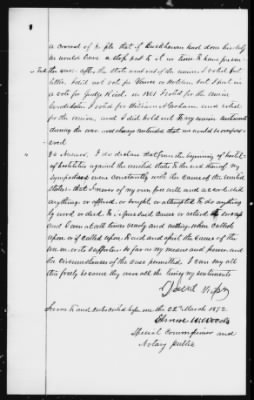 a crowd of people that if Buckhannon had done his duty
he would have a stop put to it in time to have preven-
the war. after the state went out of the union I voted but
little. I did not vote for Vance or Holden but I put in
a vote for Judge Reid. in 1861 I voted for the union
candidates I voted for William A Graham and voted
for the union, and I did hold out to my union sentiments
during the war and always contended that we would be conquer-
ered
32 Answer. I do declare that from the beginning of hostil-
of hostilities against the united states to the end thereof my
sympathies were constantly with the cause of the united
states. that I never of my own free will and accord did
anything or offered or sought or attempted to do anything
by word or deed to injure said cause or retard its
and I am at all times ready and willing when called
upon or if called upon to aid and the cause of the
union or its supporters so far as my means and power and
the circumstances of the case permitted. I can say all
this freely because they were all the time my sentiments
Sworn to and subscribed before me the 22d March 1872
Special Commissioner and
Notary public